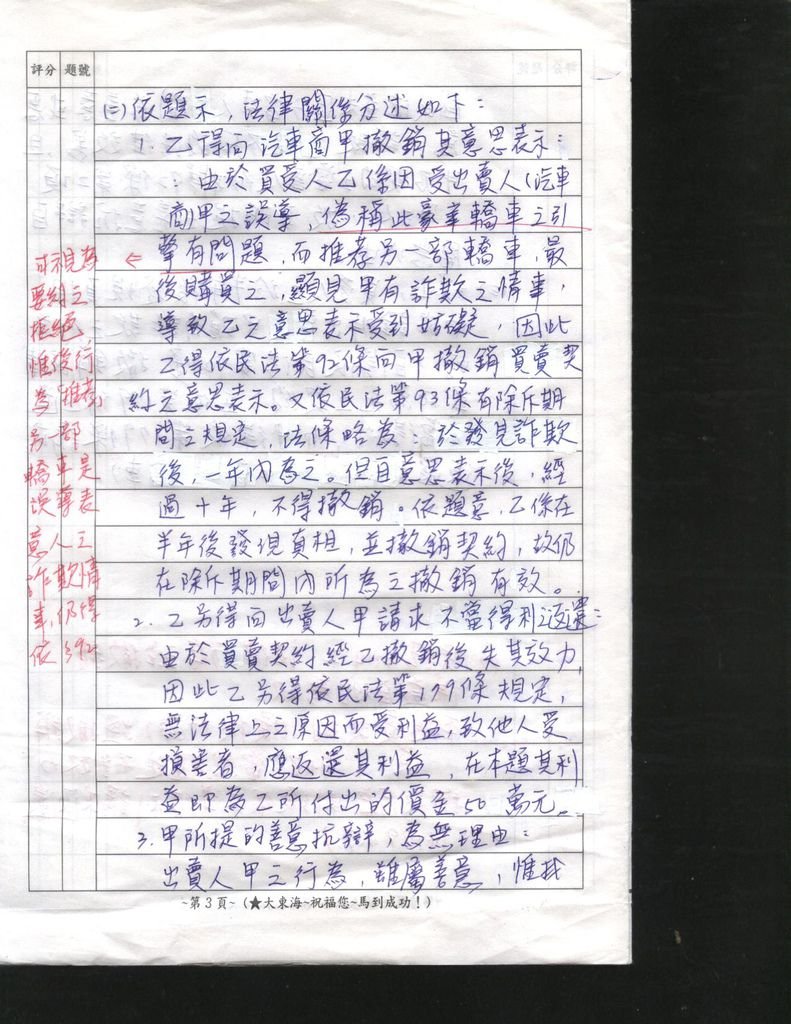 評分 題號
(二)依題示，法律關係分述如下：
1. 乙得向汽車商甲撤銷其意思表示：
：由於買受人乙係因受出賣人(汽車
商)甲之誤導，偽稱此豪華轎車之引
擎有問題，而推荐另一部轎車，最
後購買之，顯見甲有詐欺之情事，
導致乙之意思表示受到妨礙，因此
乙得依民法第92條向甲撤銷買賣契
約之意思表示。又依民法第93條有除斥期
間之規定，法條略為：於發見詐欺
後，一年內為之。但自意思表示後，經
過十年，不得撤銷。依題意，乙係在
半年後發現真相，並撤銷契約，故仍
在除斥期間內所為之撤銷有效。
2. 乙另得向出賣人甲請求不當得利之返還：
由於買賣契約經乙撤銷後失其效力，
因此乙另得依民法第179條規定，
無法律上之原因而受利益，致他人受
損害者，應返還其利益，在本題其利
益即為乙所付出的價金50萬元。
3. 甲所提的善意抗辯，為無理由：
出賣人甲之行為，雖屬善意，惟我
←可視為
要約之
拒絕
惟後行
為推荐
另一部
轎車是
誤導表
意人之
詐欺情
事，仍得
依§92
~第3頁~(★大東海~祝福您~馬到成功！)